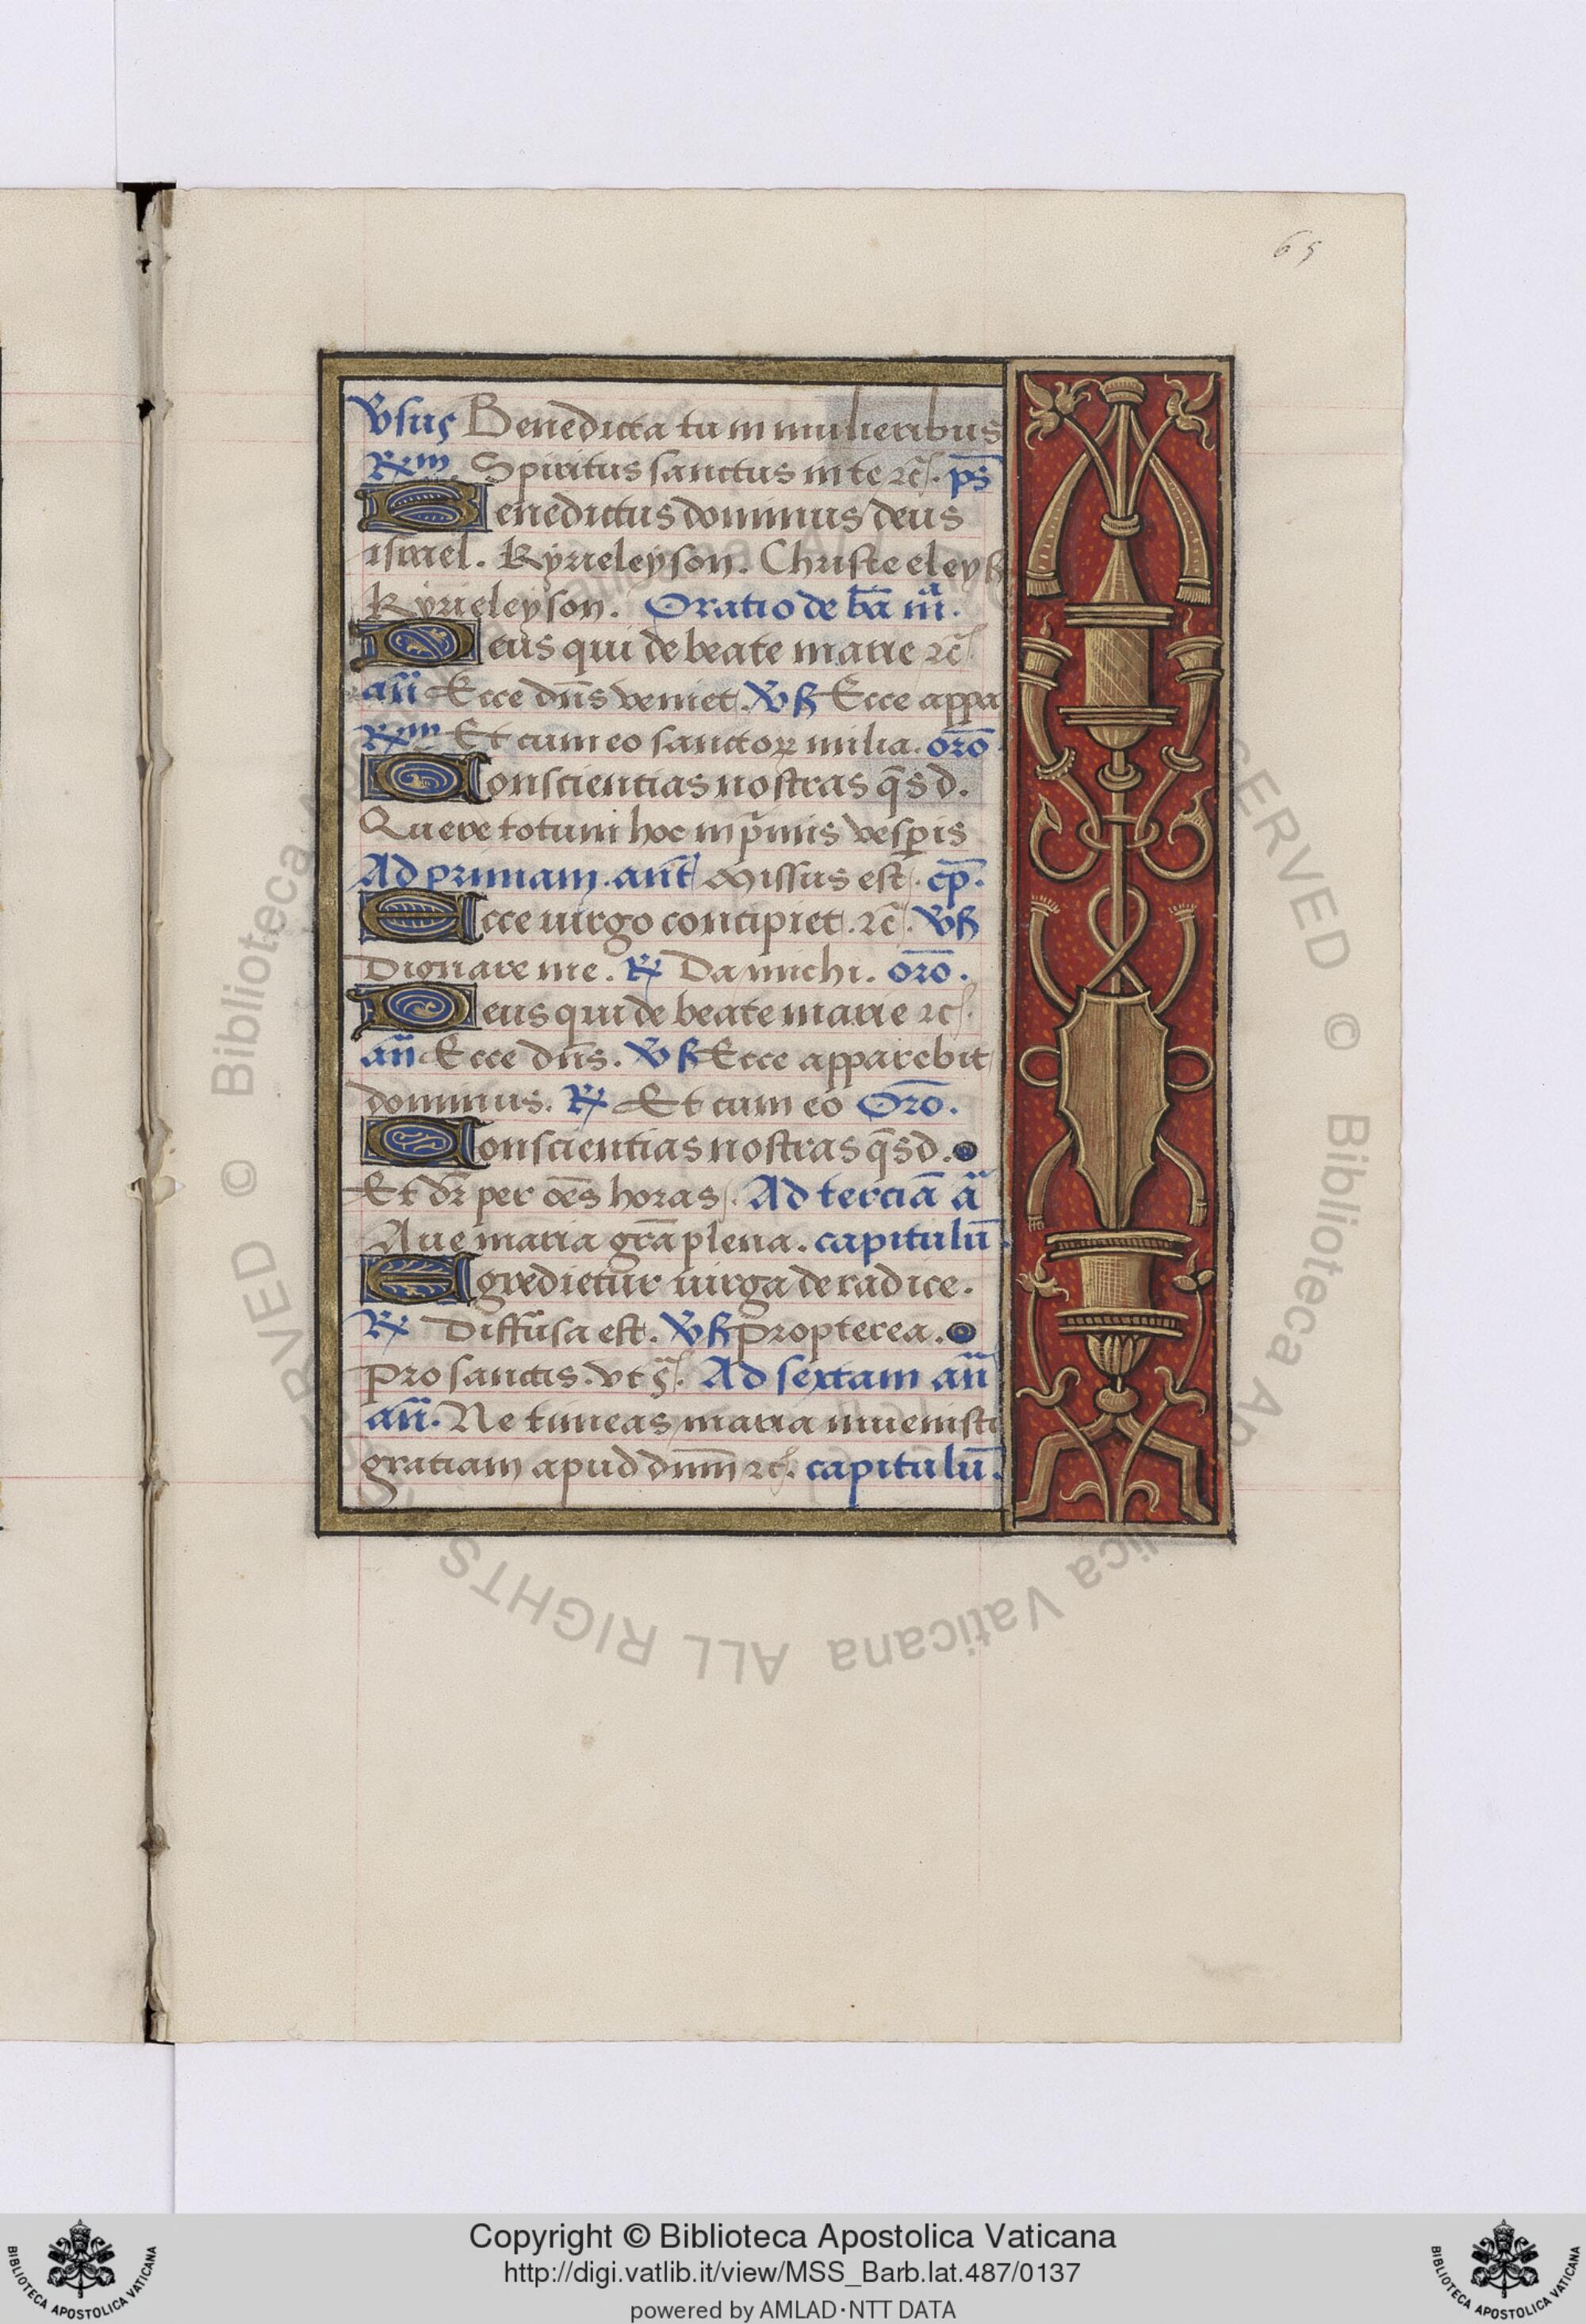 65
Vsus Benedicta tu in mulieribus
R̃m. Spiritus sanctus in te ⁊c̃. ps̄
Benedictus dominus deus
israel. Kyrieleyson. Christe eleyß
Kyrieleyson. Oratio de bã m̃.
Deus qui de beate marie ⁊c̃
añ Ecce dñs veniet. Vß Ecce appa
R̃m Et cum eo sanctoꝝ milia. orõ
Conscientias nostras q̃s d.
Quere totum hoc in p̃mis vesꝑis
Ad primam. ant̃ Missus est. cp̃.
Ecce uirgo concipiet. ⁊c̃. Vß
Dignare me. ℟ Da michi. orõ.
Deus qui de beate marie ⁊c̃.
añ Ecce dñs. Vß Ecce apparebit
dominus. ℟ Et cum eo Orõ.
Conscientias nostras q̃s d.
Et dr̃ per oẽs horas. Ad terciã ã
Aue maria gr̃a plena. capitulũ.
Egredietur uirga de radice.
℟ Diffusa est. Vß propterea.
pro sanctis. vt s̃. Ad sextam añ
añ. Ne timeas maria inuenisti
gratiam apud dñm ⁊c̃. capitulũ.
© Biblioteca Apostolica Vaticana ALL RIGHTS RESERVED
Copyright © Biblioteca Apostolica Vaticana
http://digi.vatlib.it/view/MSS_Barb.lat.487/0137
powered by AMLAD·NTT DATA
BIBLIOTECA APOSTOLICA VATICANA
BIBLIOTECA APOSTOLICA VATICANA